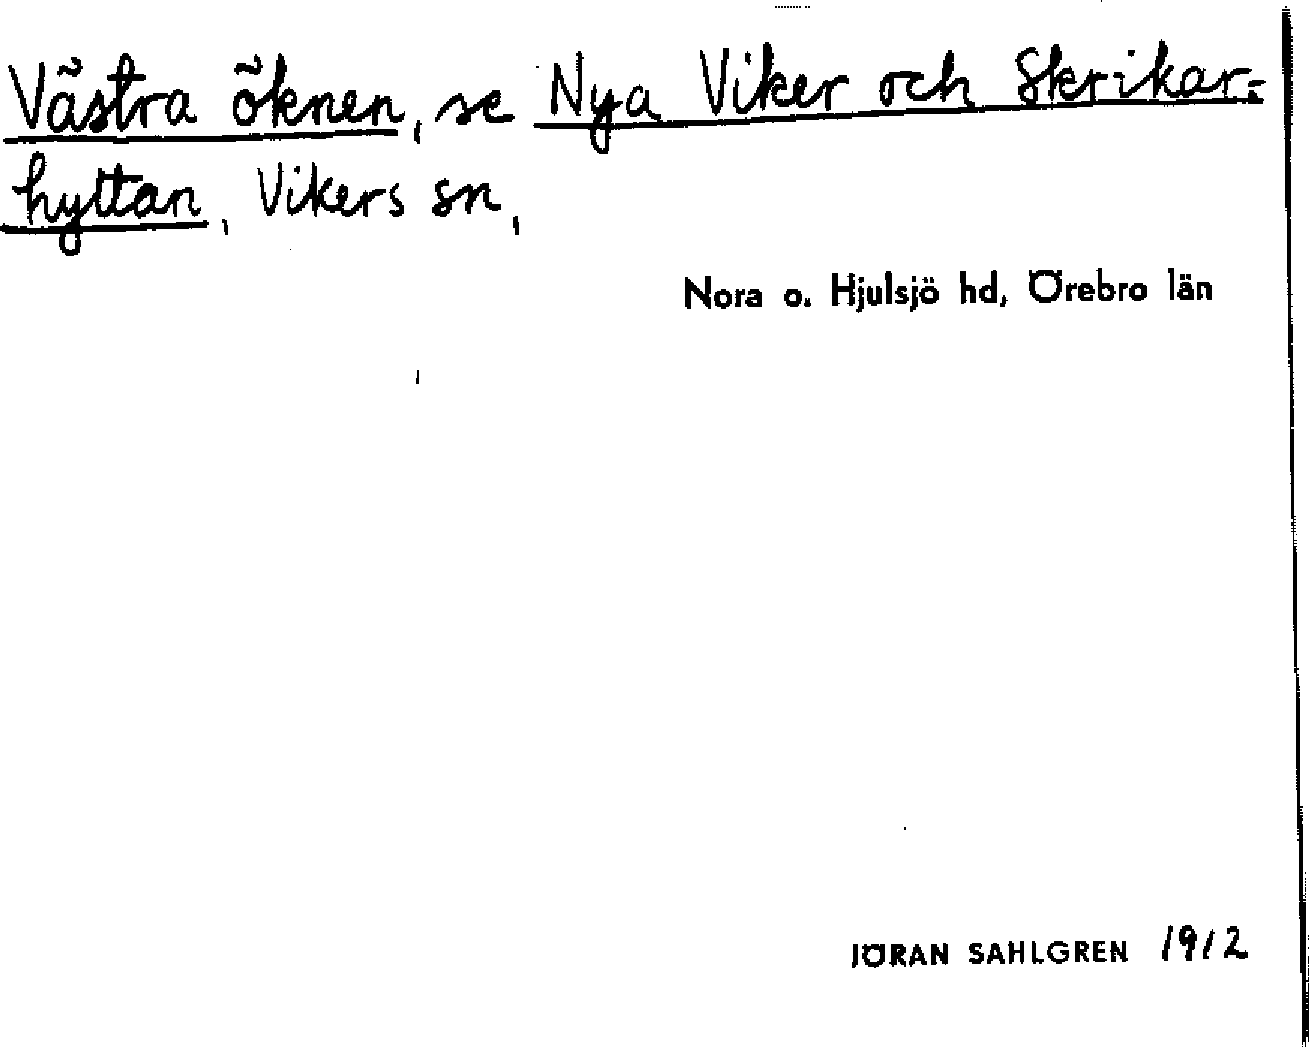 Västra öknen, se Nya Viker och Skrikar=
hyttan, Vikers sn,
Nora o. Hjulsjö hd, Örebro län
JÖRAN SAHLGREN 1912